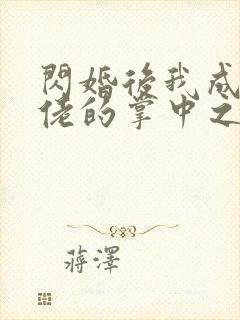 閃婚後我成
佬的掌中之
蔣澤